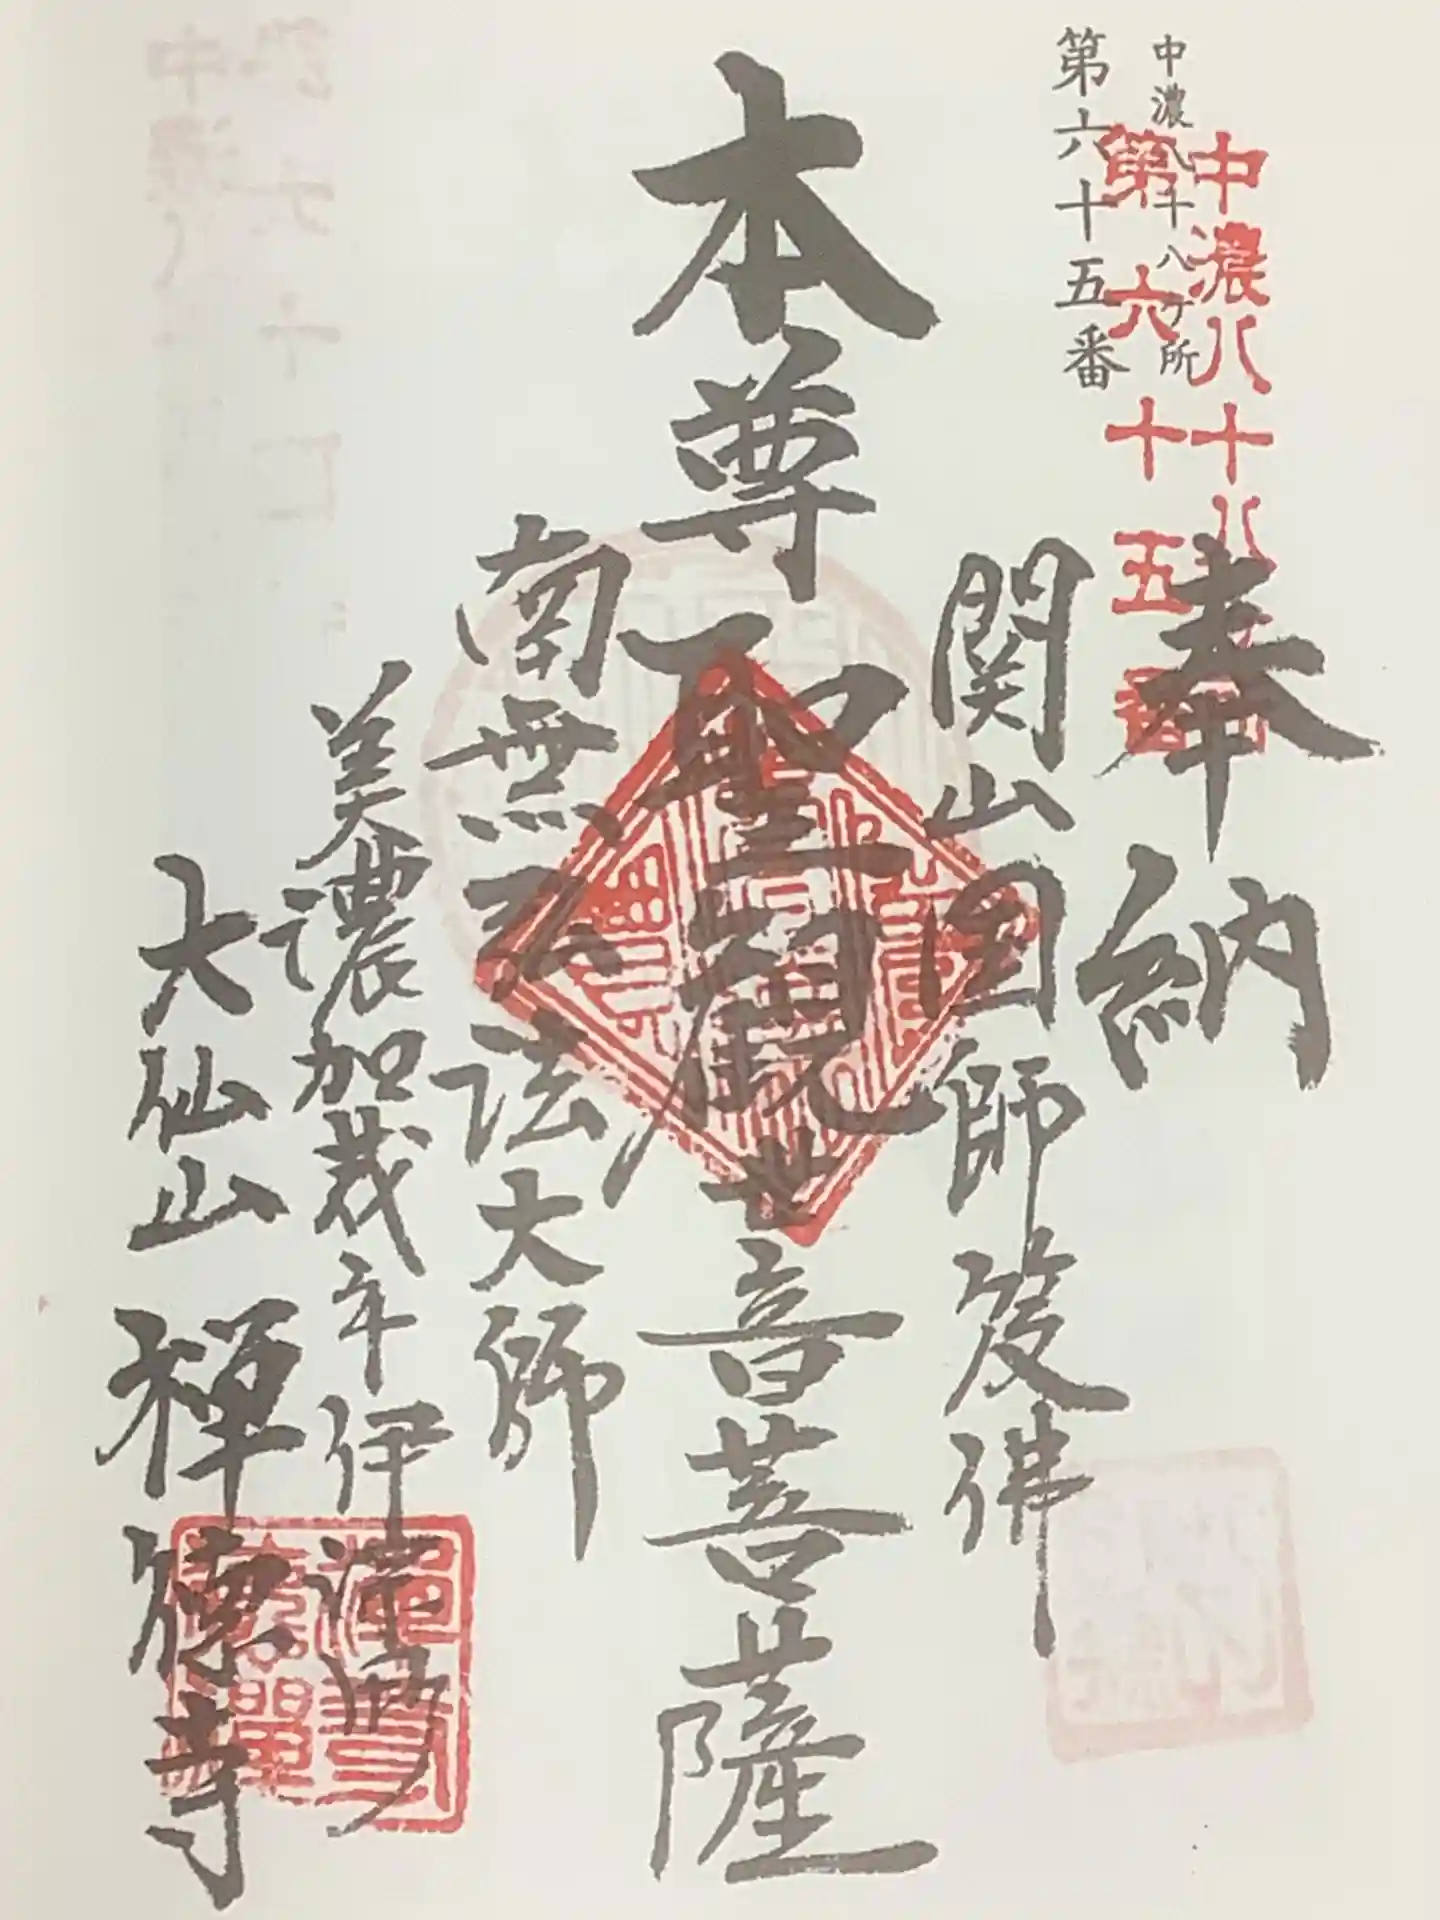 中濃八十八ヶ所
第六十五番
中濃八十八ヶ所
第六十五番
奉納
関山国師笈佛
本尊聖観世音菩薩
南無弘法大師
美濃加茂市伊深町
大仙山
禅徳寺